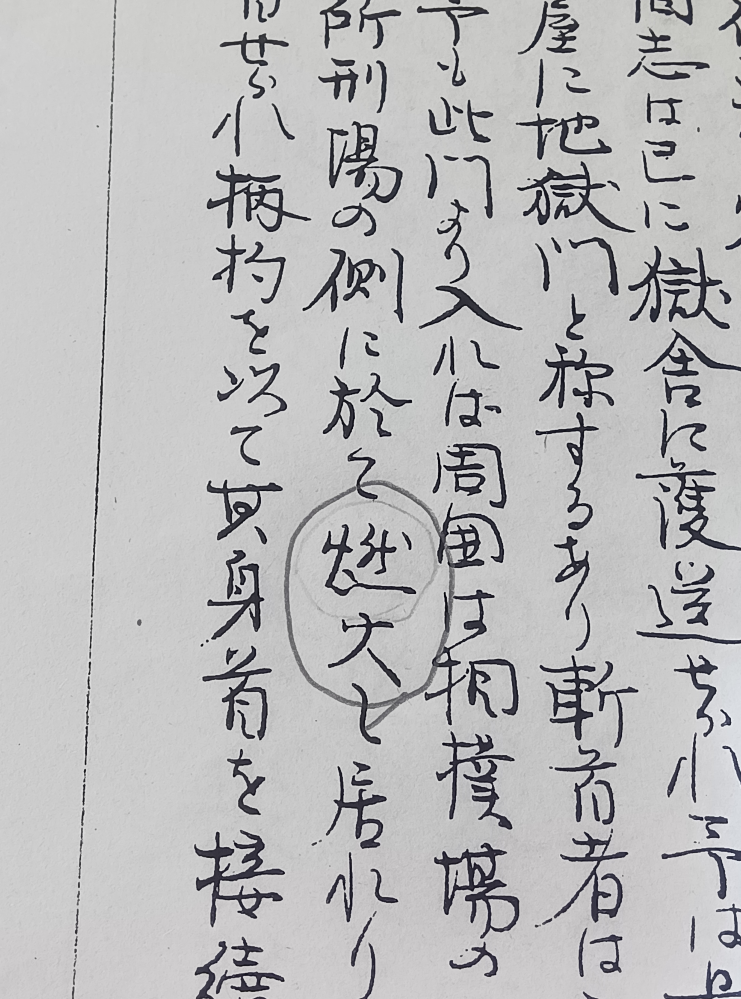 同志は已に獄舎に護送せられ予は
屋に地獄門と称するあり斬首者は
予も此門より入れは周囲は相撲場の
所刑場の側に於て燃火し居れり
せられ柄杓を以て其身首を接続